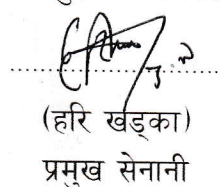 (हरि खड्का)
प्रमुख सेनानी